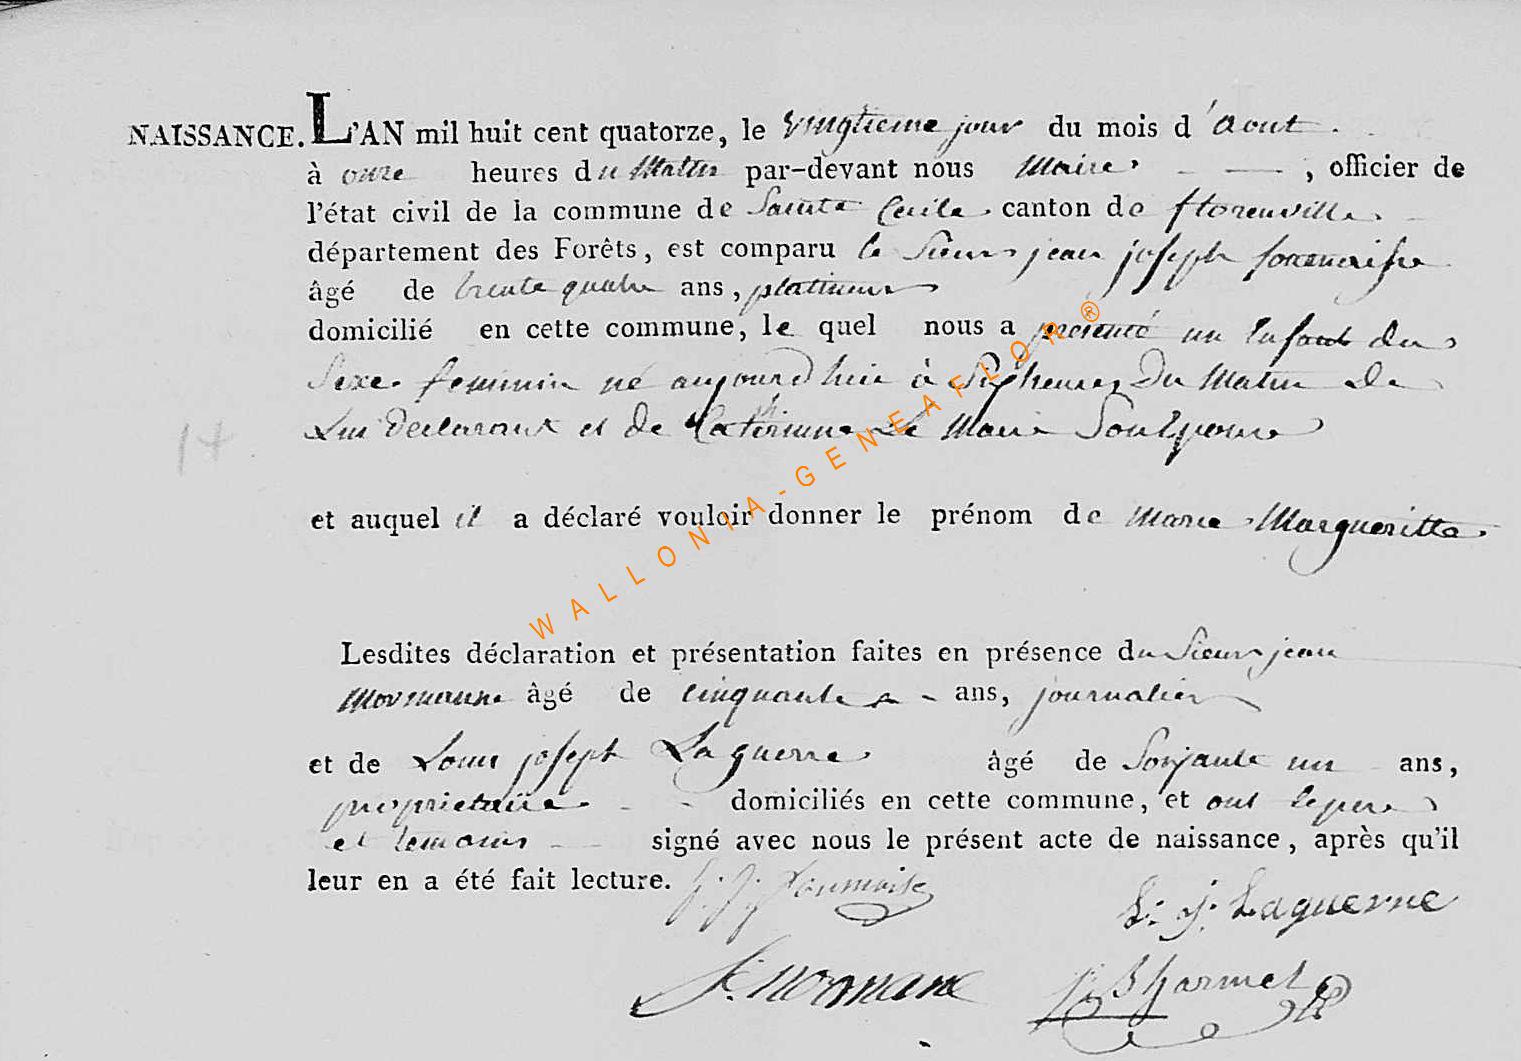 NAISSANCE. L'AN mil huit cent quatorze, le vingtieme jour du mois d'aout.
à onze heures du Matin par-devant nous Maire, officier de
l'état civil de la commune de Sainte Cecile canton de florenville
département des Forêts, est comparu le Sieur jean joseph
âgé de trente quatre ans, platineur
domicilié en cette commune, le quel nous a presenté un Enfant du
Sexe feminin né aujourd'huie à Six heures Du Matin De
Lui Declarant et de Catherinne Le Marie Son Epouse
14
et auquel il a déclaré vouloir donner le prénom de Marie Margueritte.
Lesdites déclaration et présentation faites en présence du Sieur jean
Mormanne âgé de cinquante ans, journalier
et de Louis joseph Laguerre âgé de Soixante un ans,
proprietaire. domiciliés en cette commune, et ont le pere
et temoins signé avec nous le présent acte de naissance, après qu'il
leur en a été fait lecture. j. j.
L. j. Laguerre
j. mormane
WALLONIA-GENEAFLOR®